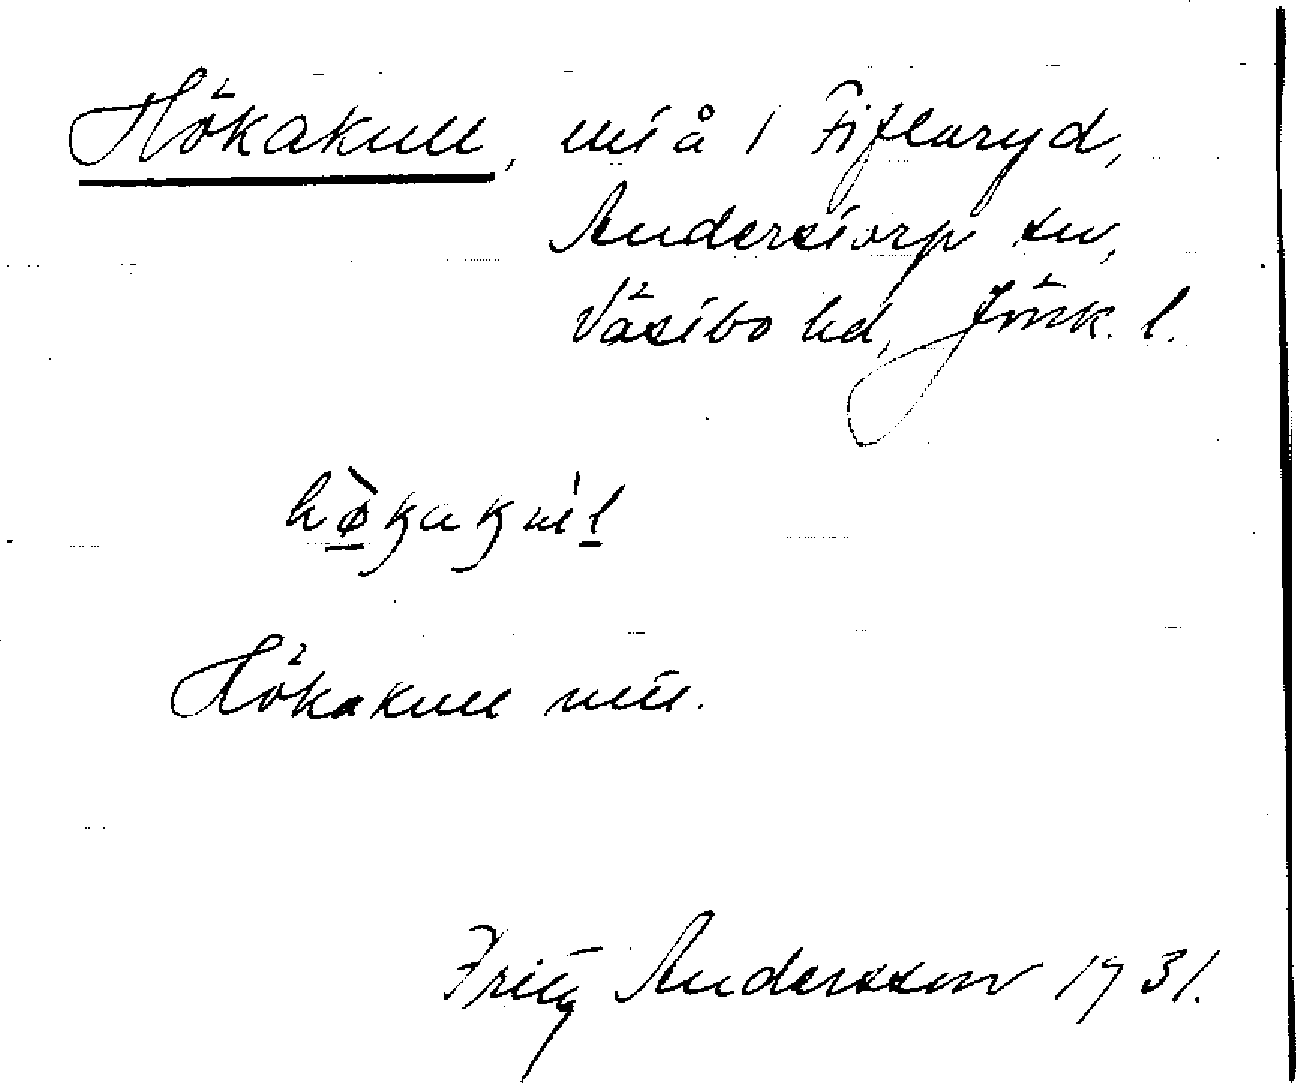 Hökakull, mså i Fiflaryd,
Anderstorp sn,
Västbo hd, Jönk. l.
Hökakull
Fritz Andersson 1931.